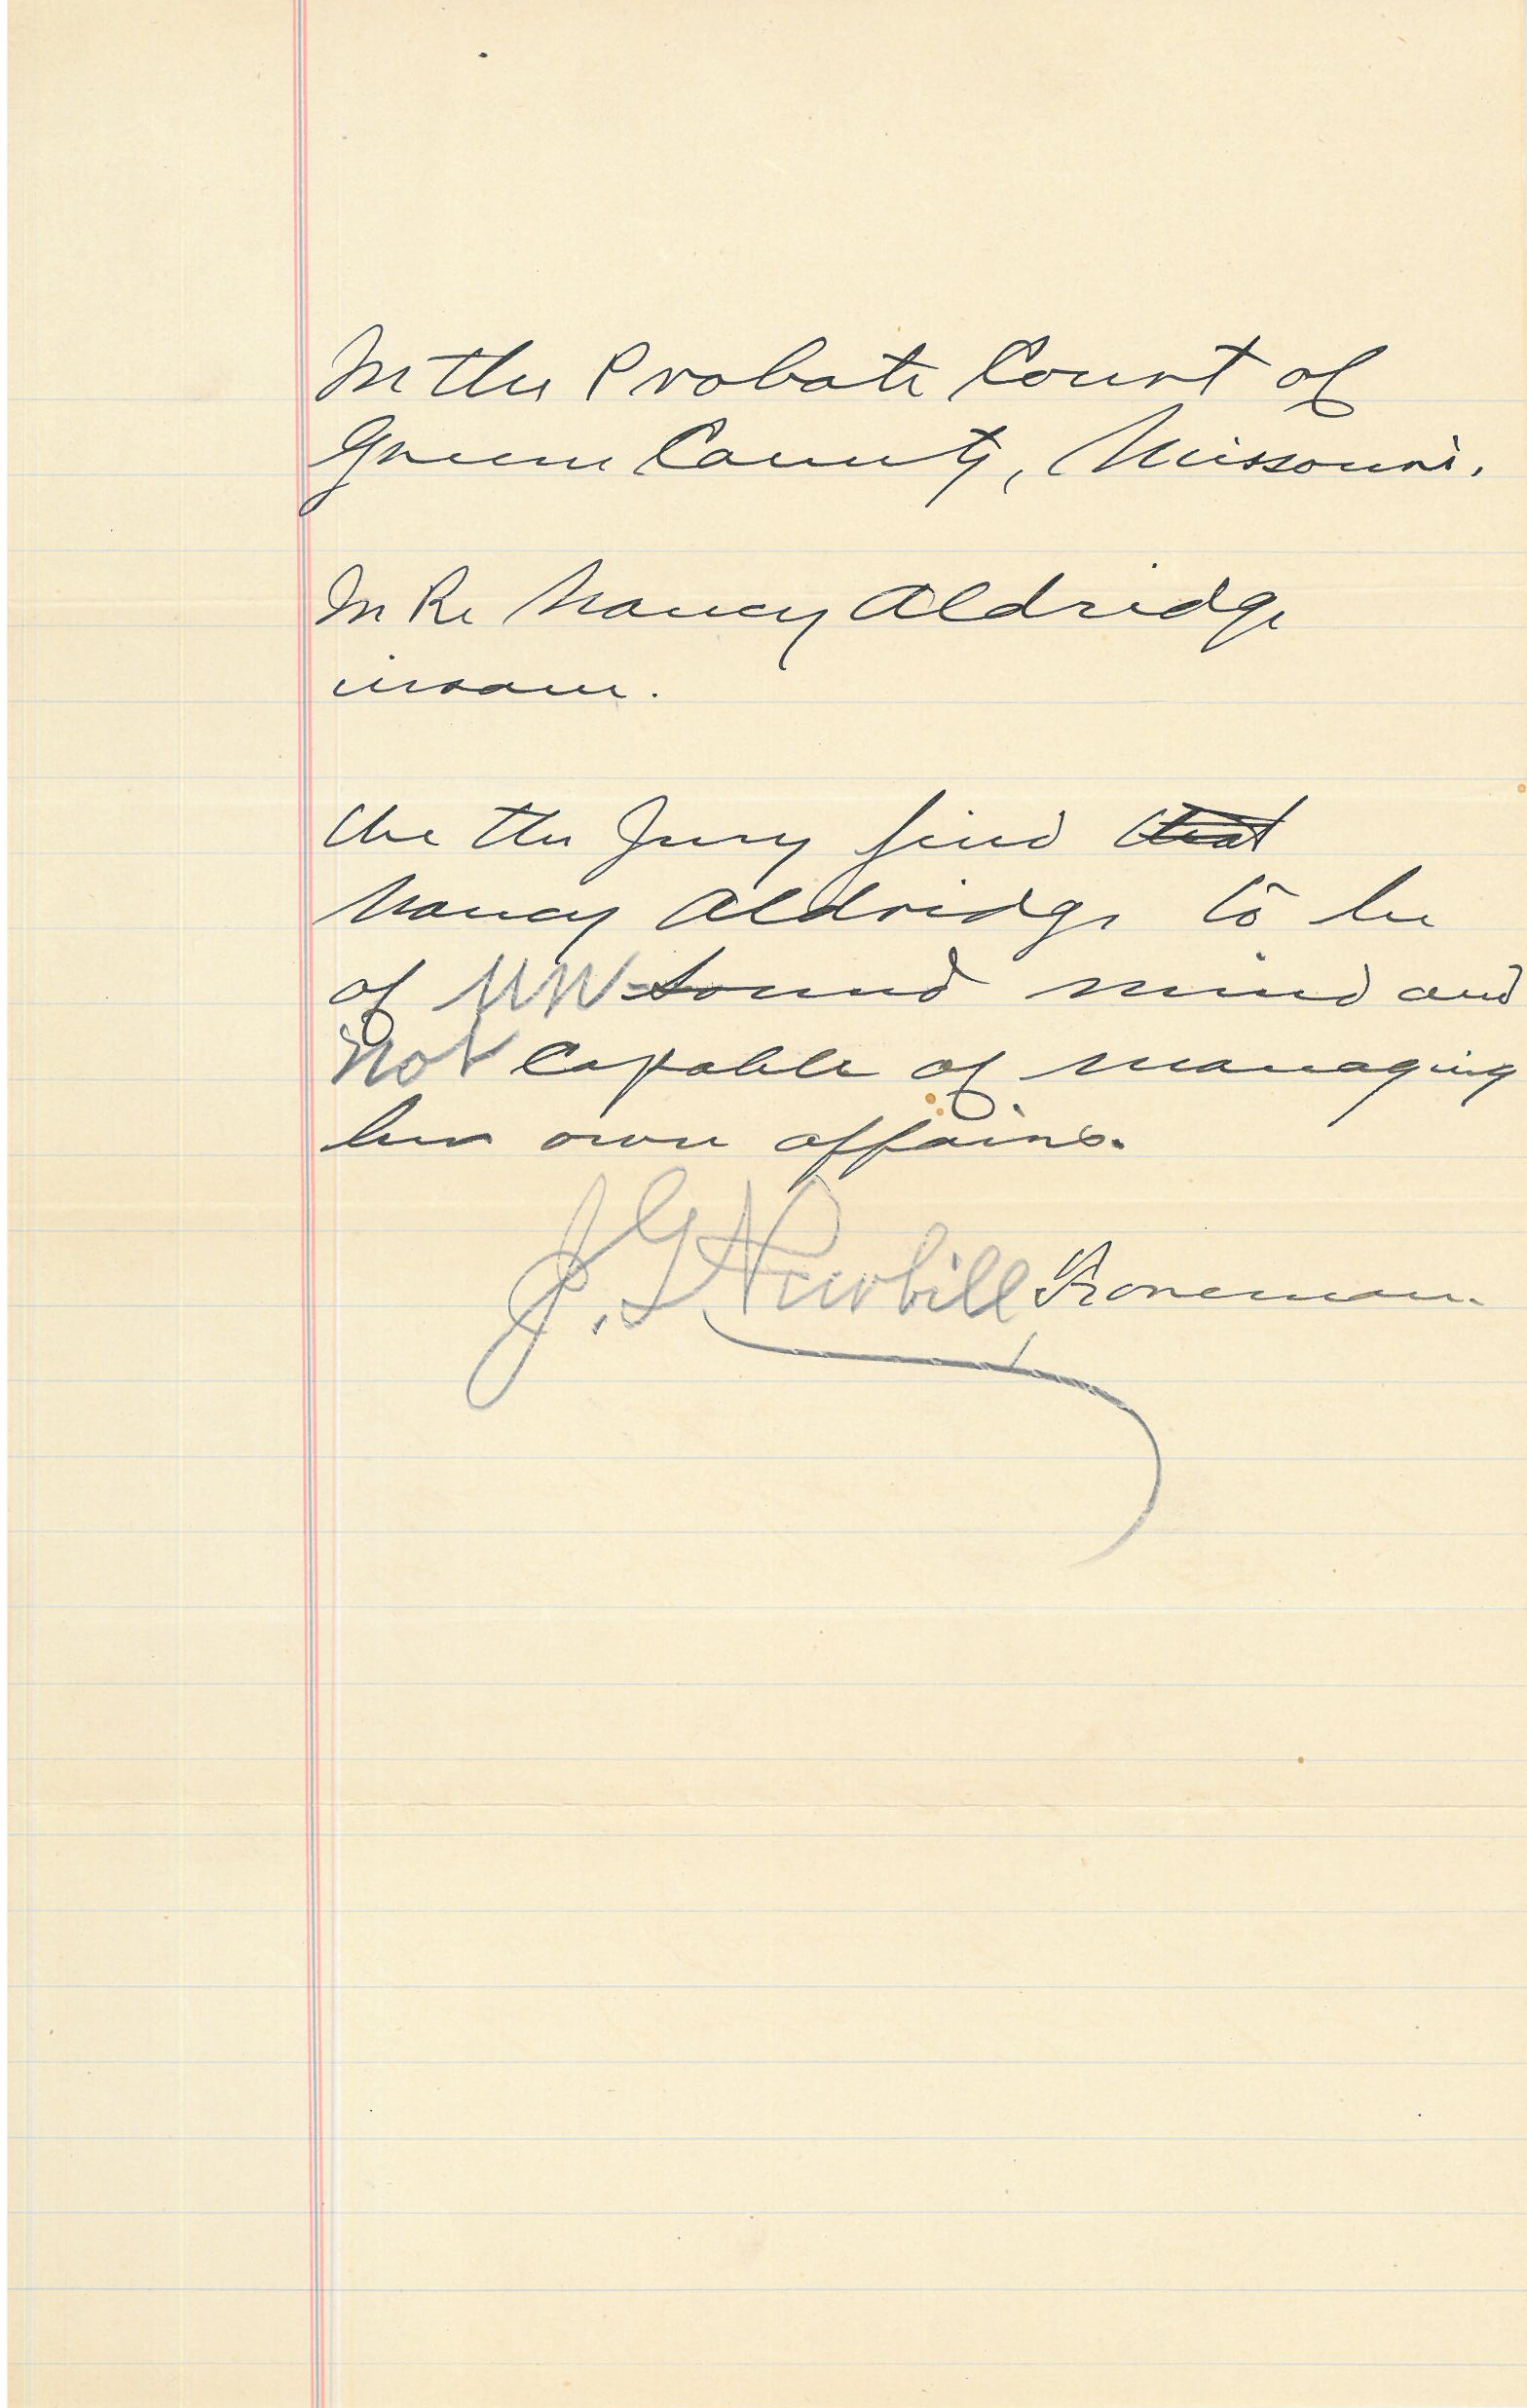 In the Probate Court of
Greene County, Missouri.
In Re Nancy Aldridge
insane.
We the Jury find that
Nancy Aldridge to be
of UN-sound mind and
Not capable of managing
her own affairs.
J. G. Newbill, Foreman.